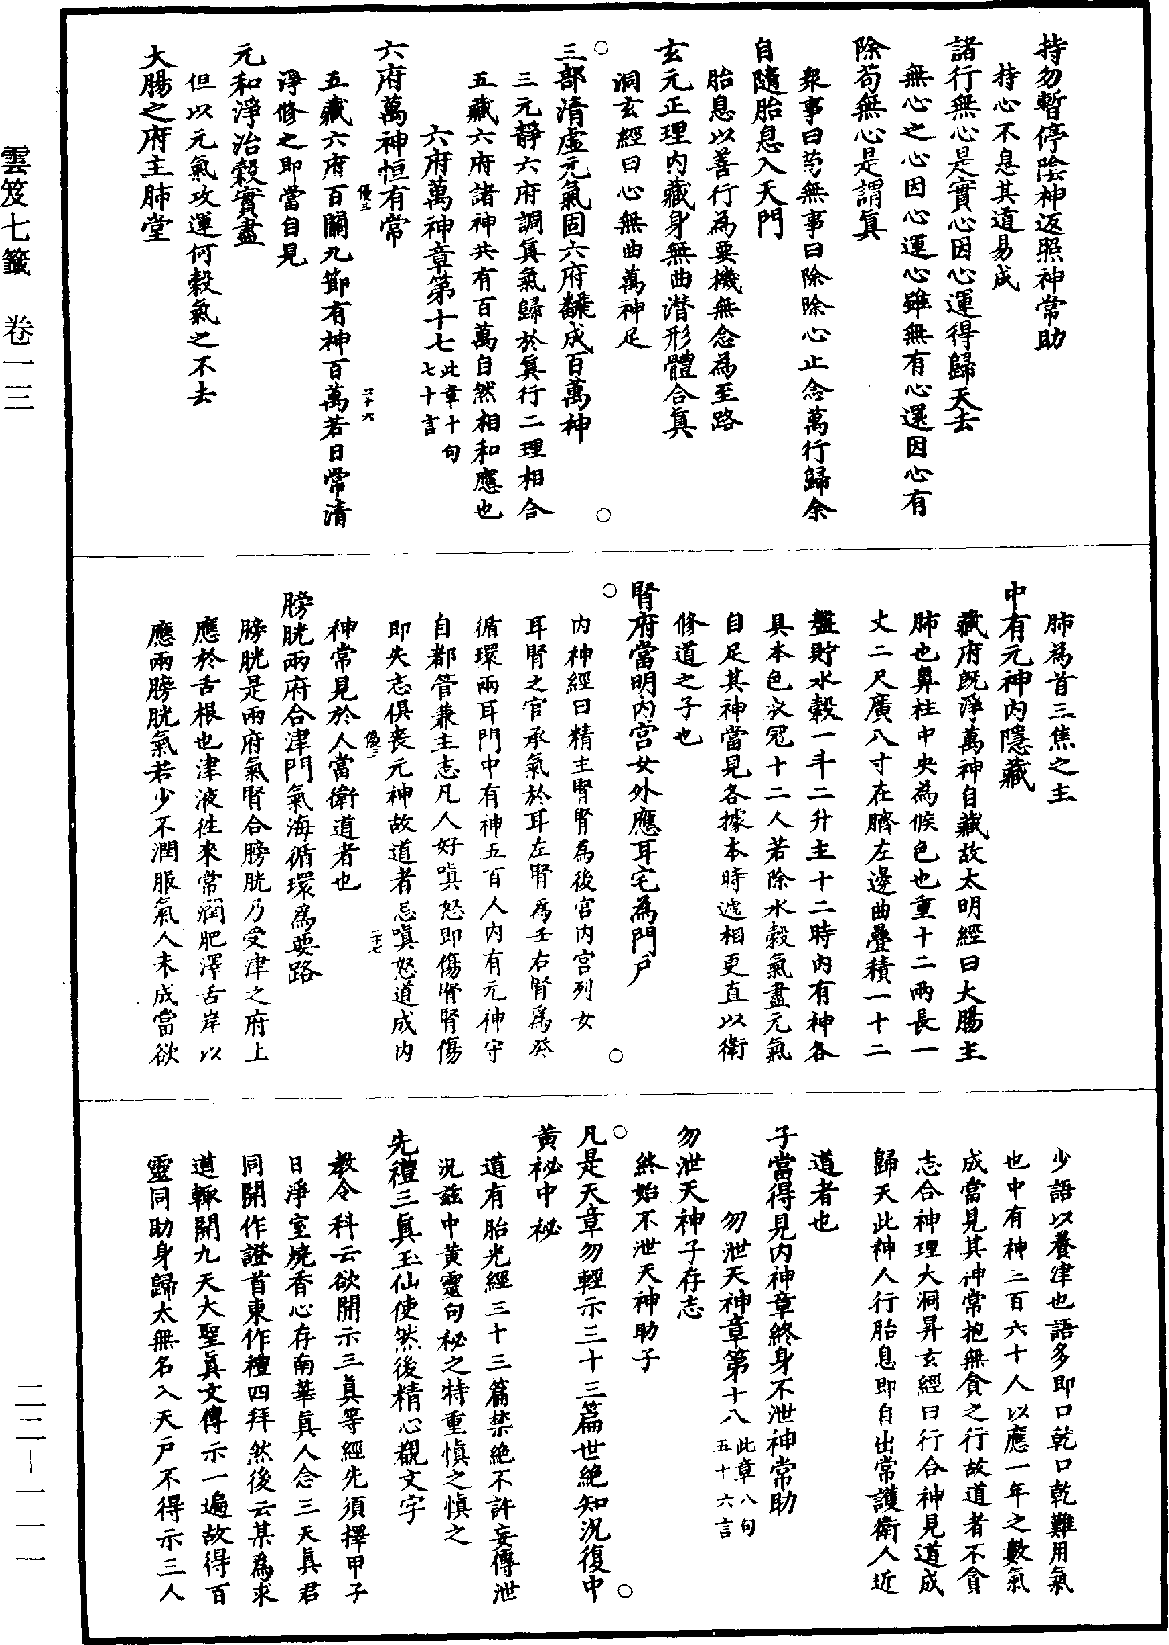 持勿暫停陰神返照神常助
持心不息其道易成
諸行無心是實心因心運得歸天去
無心之心因心運心雖無有心還因心有
除苟無心是謂真
衆事曰苟無事曰除除心止念萬行歸余
自隨胎息入天門
胎息以善行為要機無念為至路
玄元正理内藏身無曲潛形體合真
洞玄經曰心無曲萬神足
三部清虛元氣固六府翻成百萬神
三元靜六府調真氣歸於真行二理相合
五藏六府諸神共有百萬自然相和應也
六府萬神章第十七此章十句七十言
六府萬神恒有常
五藏六府百關九節有神百萬若日常清
淨修之即當自見
元和淨治穀實盡
但以元氣攻運何穀氣之不去
大腸之府主肺堂
肺為首三焦之主
中有元神内隱藏
藏府既淨萬神自藏故太明經曰大腸主
肺也鼻柱中央為候色也重十二兩長一
丈二尺廣八寸在臍左邊曲疊積一十二
盤貯水穀一斗二升主十二時内有神各
具本色衣冠十二人若除水穀氣盡元氣
自足其神當見各據本時遞相更直以衛
修道之子也
腎府當明内宫女外應耳宅為門户
内神經曰精主腎腎為後宫内宫列女
耳腎之官承氣於耳左腎為壬右腎為癸
循環兩耳門中有神五百人内有元神守
自都管兼主志凡人好嗔怒即傷腎腎傷
即失志俱喪元神故道者忌嗔怒道成内
神常見於人當衛道者也
膀胱兩府合津門氣海循環為要路
膀胱是兩府氣腎合膀胱乃受津之府上
應於舌根也津液往來常潤肥澤舌岸以
應兩膀胱氣若少不潤服氣人未成當欲
少語以養津也語多即口乾口乾難用氣
也中有神二百六十人以應一年之數氣
成當見其神常抱無貪之行故道者不貪
志合神理大洞昇玄經曰行合神見道成
歸天此神人行胎息即自出常護衛人近
道者也
子當得見内神章終身不泄神常助
勿泄天神章第十八此章八句五十六言
勿泄天神子存志
終始不泄天神助子
凡是天章勿輕示三十三篇世絶知況復中
黄祕中祕
道有胎光經三十三篇禁絶不許妄傳泄
況兹中黄靈句秘之特重慎之慎之
先禮三真玉仙使然後精心觀文字
教令科云欲開示三真等經先須擇甲子
日淨室燒香心存南華真人念三天真君
同開作證首東作禮四拜然後云某為求
道輒開九天大聖真文傳示一遍故得百
靈同助身歸太無名入天户不得示三人
雲笈七籤　卷一三
二二－一一一